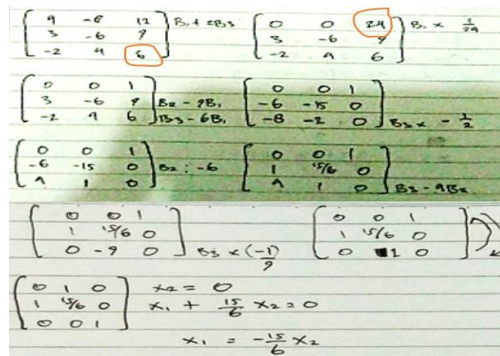 9 -6 12
3 -6 9
-2 4 6
B1 + 2B3
0 0 24
3 -6 9
-2 4 6
B1 x 1/24
0 0 1
3 -6 9
-2 4 6
B2 - 9B1
B3 - 6B1
0 0 1
-6 -15 0
-8 -2 0
B3 x - 1/2
0 0 1
-6 -15 0
4 1 0
B2 : -6
0 0 1
1 15/6 0
4 1 0
B3 - 4B2
0 0 1
1 15/6 0
0 -9 0
B3 x (-1)/9
0 0 1
1 15/6 0
0 1 0
0 1 0
1 15/6 0
0 0 1
x2 = 0
x1 + 15/6 x2 = 0
x1 = -15/6 x2